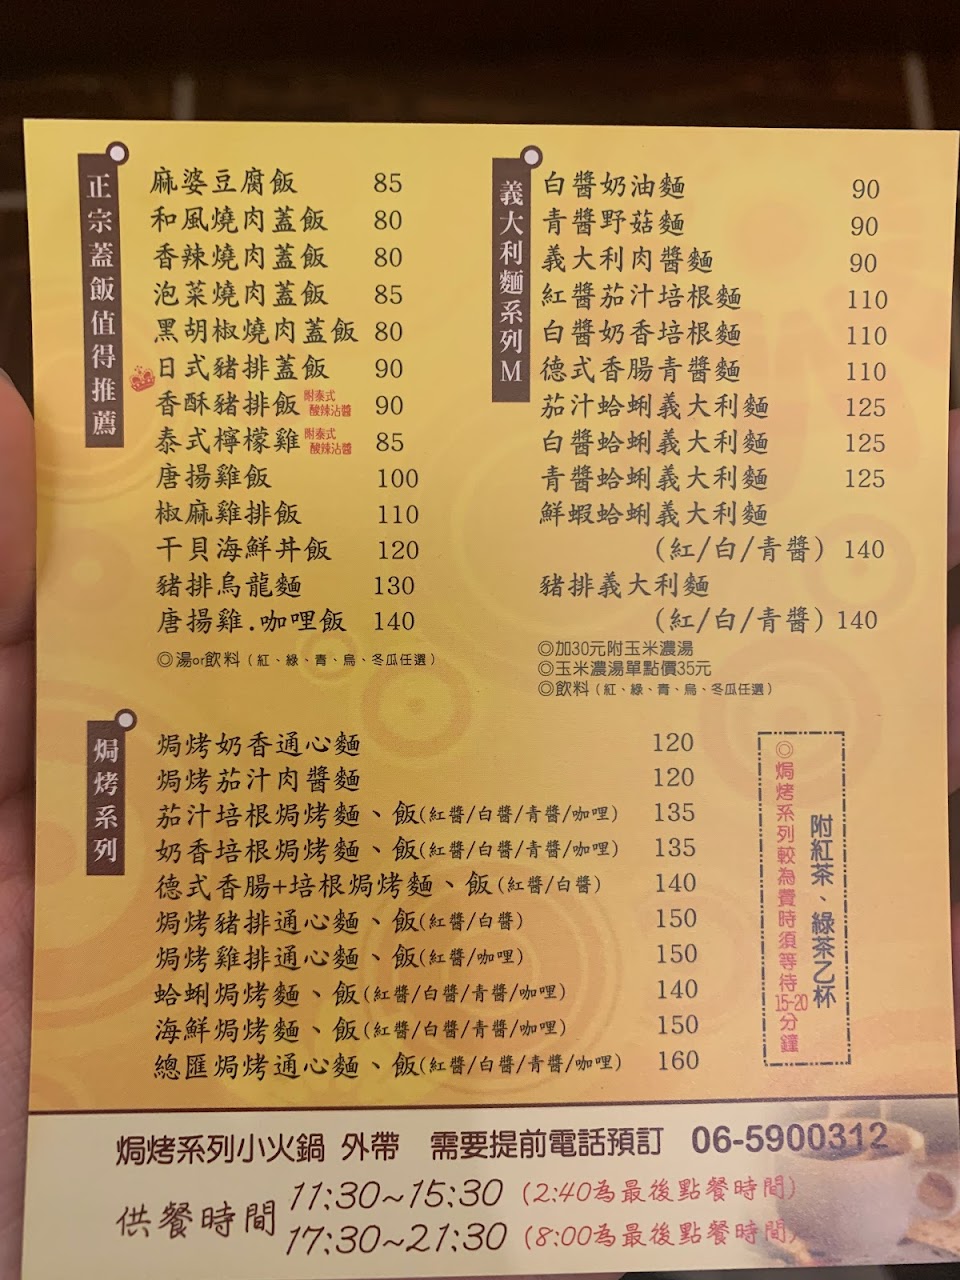 正宗蓋飯值得推薦
麻婆豆腐飯 85
和風燒肉蓋飯 80
香辣燒肉蓋飯 80
泡菜燒肉蓋飯 85
黑胡椒燒肉蓋飯 80
日式豬排蓋飯 90
香酥豬排飯 附泰式酸辣沾醬 90
泰式檸檬雞 附泰式酸辣沾醬 85
唐揚雞飯 100
椒麻雞排飯 110
干貝海鮮丼飯 120
豬排烏龍麵 130
唐揚雞.咖哩飯 140
◎湯or飲料(紅、綠、青、烏、冬瓜任選)
義大利麵系列M
白醬奶油麵 90
青醬野菇麵 90
義大利肉醬麵 90
紅醬茄汁培根麵 110
白醬奶香培根麵 110
德式香腸青醬麵 110
茄汁蛤蜊義大利麵 125
白醬蛤蜊義大利麵 125
青醬蛤蜊義大利麵 125
鮮蝦蛤蜊義大利麵
(紅/白/青醬) 140
豬排義大利麵
(紅/白/青醬) 140
◎加30元附玉米濃湯
◎玉米濃湯單點價35元
◎飲料(紅、綠、青、烏、冬瓜任選)
焗烤系列
焗烤奶香通心麵 120
焗烤茄汁肉醬麵 120
茄汁培根焗烤麵、飯(紅醬/白醬/青醬/咖哩) 135
奶香培根焗烤麵、飯(紅醬/白醬/青醬/咖哩) 135
德式香腸+培根焗烤麵、飯(紅醬/白醬) 140
焗烤豬排通心麵、飯(紅醬/白醬) 150
焗烤雞排通心麵、飯(紅醬/咖哩) 150
蛤蜊焗烤麵、飯(紅醬/白醬/青醬/咖哩) 140
海鮮焗烤麵、飯(紅醬/白醬/青醬/咖哩) 150
總匯焗烤通心麵、飯(紅醬/白醬/青醬/咖哩) 160
附紅茶、綠茶乙杯
◎焗烤系列較為費時須等待15-20分鐘
焗烤系列小火鍋 外帶 需要提前電話預訂 06-5900312
供餐時間
11:30~15:30 (2:40為最後點餐時間)
17:30~21:30 (8:00為最後點餐時間)